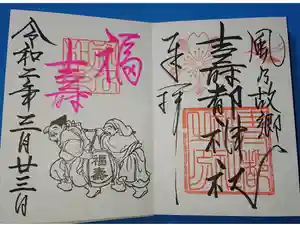 風の故郷へ
壽都神社
奉拝
福
壽
福壽
令和二年三月廿三日